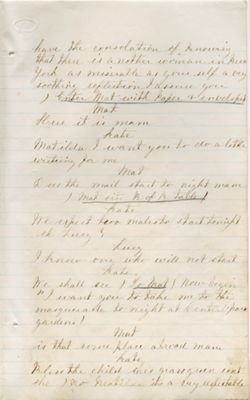 have the consolation of knowing
that there is another woman in New
York as miserable as your self a very
soothing reflection I assure you
) Enter Mat with Paper & envelopes
Mat
Here it is mam
Kate
Matilda I want you to do a little
writing for me
Mat
Does the mail start to night mam
) Mat sits R of R table (
Kate
We expect two males to start tonight
eh Lucy?
Lucy
I know one who will not start
Kate
We shall see ) to Mat ( now begin
"I want you to take me to the
masquerade to night at Central park
gardens"
Mat
is that some place abroad mam
Kate
Bless the child how grass green
she ) No Matilda its a very respectable